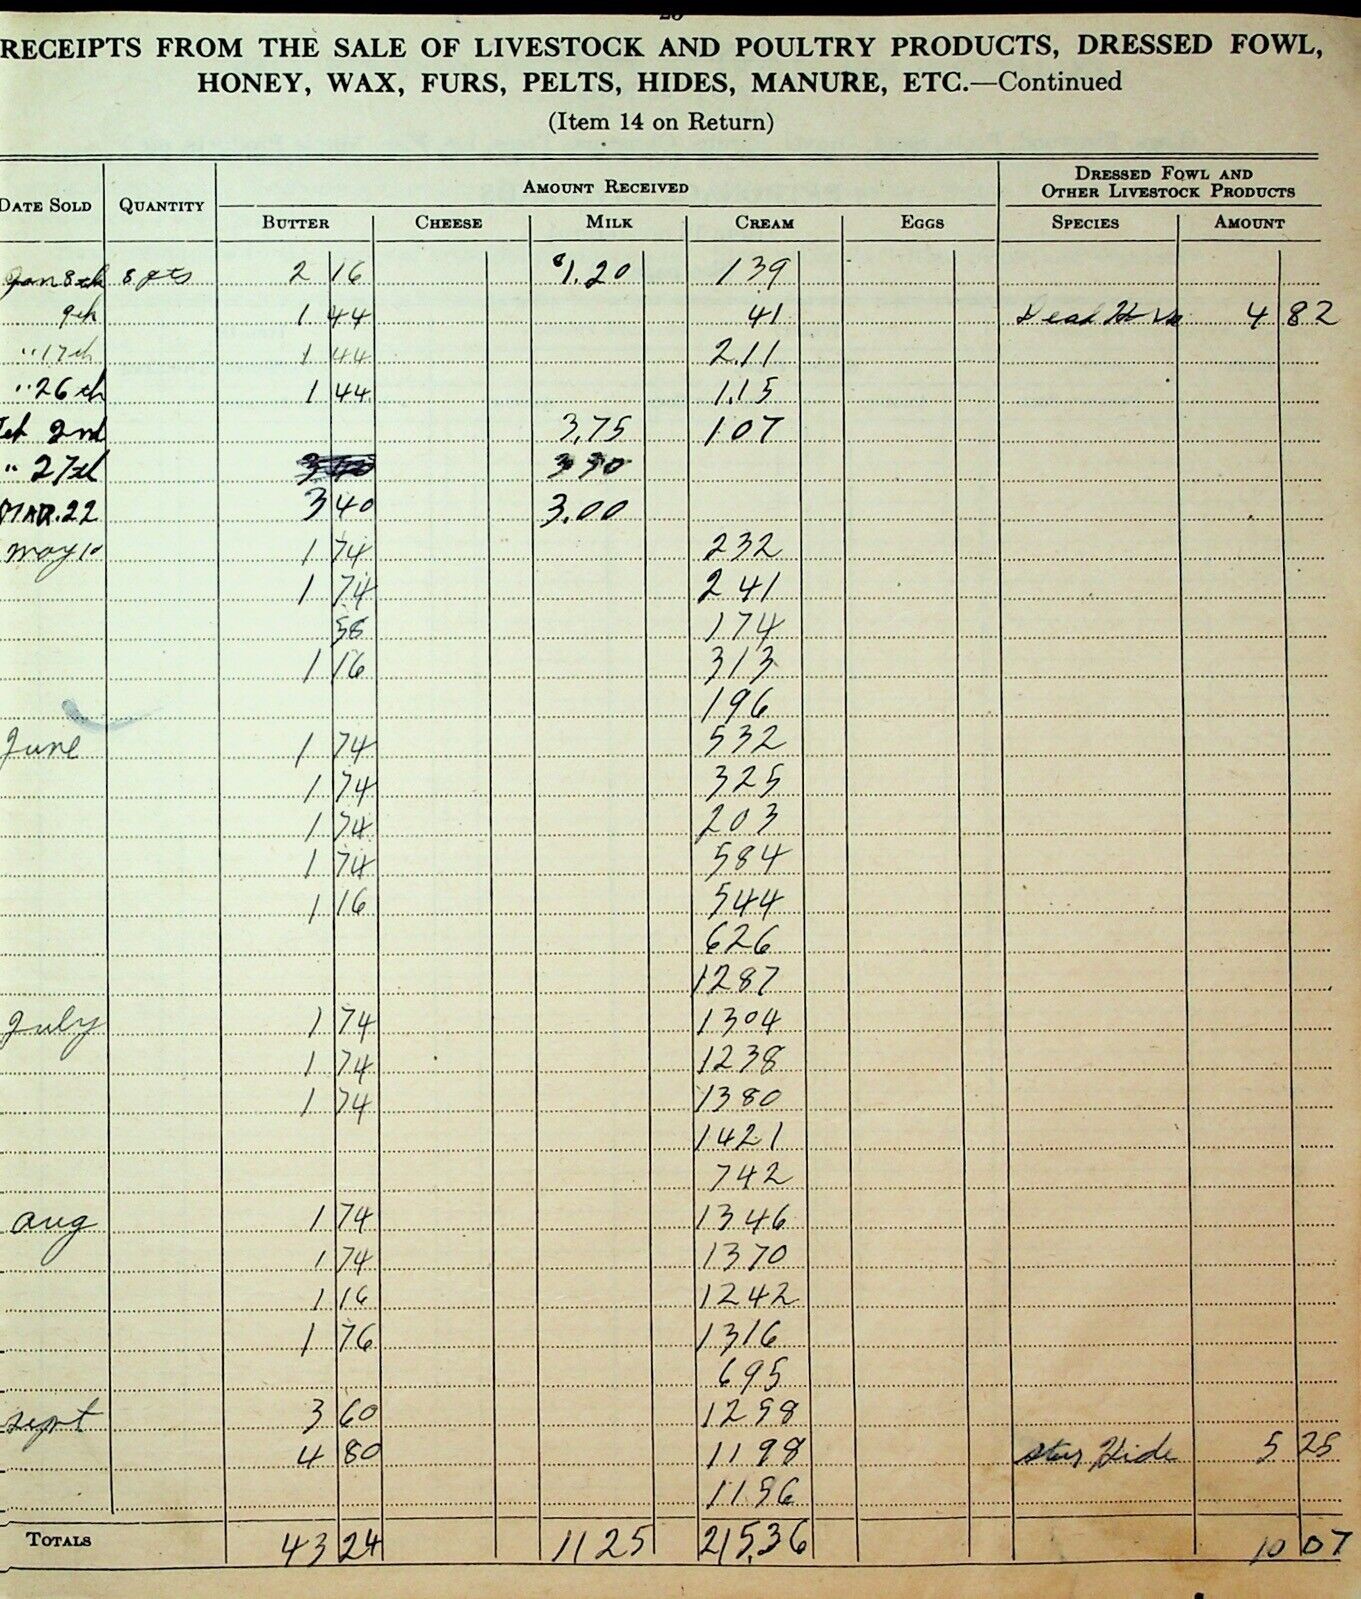 RECEIPTS FROM THE SALE OF LIVESTOCK AND POULTRY PRODUCTS, DRESSED FOWL,
HONEY, WAX, FURS, PELTS, HIDES, MANURE, ETC.—Continued
(Item 14 on Return)
DATE SOLD QUANTITY AMOUNT RECEIVED DRESSED FOWL AND OTHER LIVESTOCK PRODUCTS
BUTTER CHEESE MILK CREAM EGGS SPECIES AMOUNT
Jan 8th 8 qts 2 16 $1.20 139
9th 1 44 41 Dead 4 82
"17th 1 44 2.11
"26th 1 44 1.15
Feb 2nd 3.75 107
" 27th 3 30
MAR.22 3 40 3.00
may 10 1 74 232
1 74 2 41
58 174
1 16 313
196
June 1 74 532
1 74 325
1 74 203
1 74 584
1 16 544
626
1287
July 1 74 1304
1 74 1238
1 74 1380
1421
742
aug 1 74 1346
1 74 1370
1 16 1242
1 76 1316
695
sept 3 60 1298
4 80 1198 Hide 5 25
1196
TOTALS 43 24 11 25 215.36 10 07